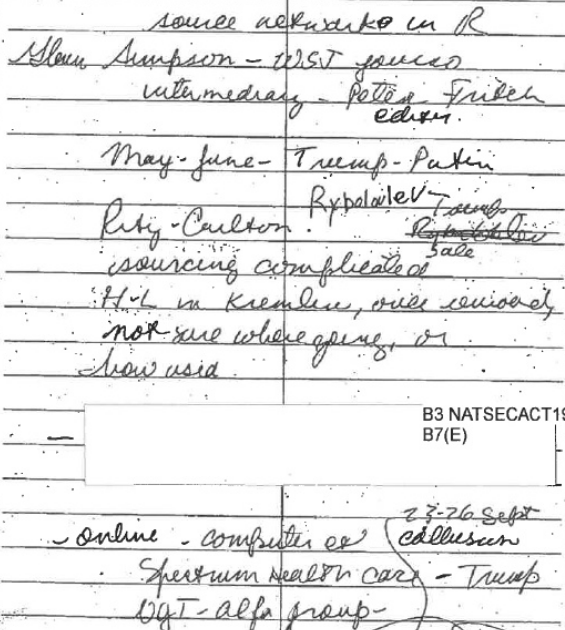 source networks in R
Glenn Simpson - WSJ
intermediary - Peter Fritsch
editor.
May-June - Trump-Putin
Rybolovlev - Trump
Ritz-Carlton.
sale
sourcing complicated
H-L in Kremlin, once removed,
not sure where going, or
how used
B3 NATSECACT19
B7(E)
23-26 Sept
- online - computer
collusion
Spectrum Health Care - Trump
- alfa group -